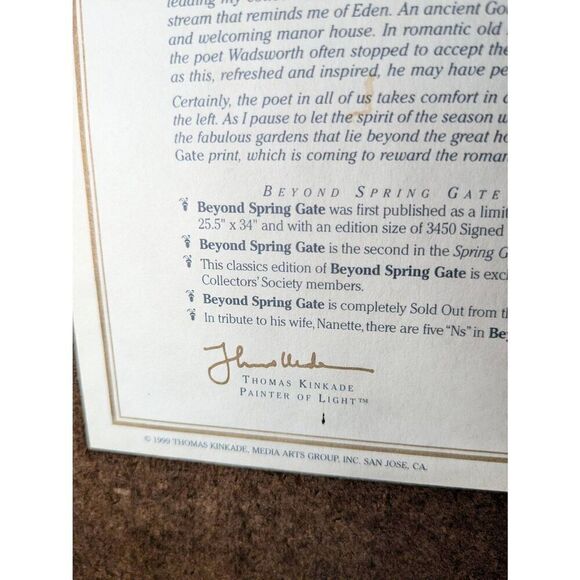 stream that reminds me of Eden. An ancient Go
and welcoming manor house. In romantic old
the poet Wadsworth often stopped to accept the
as this, refreshed and inspired, he may have pe
Certainly, the poet in all of us takes comfort in
the left. As I pause to let the spirit of the season w
the fabulous gardens that lie beyond the great ho
Gate print, which is coming to reward the roman
BEYOND SPRING GATE
Beyond Spring Gate was first published as a limit
25.5" x 34" and with an edition size of 3450 Signed
Beyond Spring Gate is the second in the Spring G
This classics edition of Beyond Spring Gate is exc
Collectors' Society members.
Beyond Spring Gate is completely Sold Out from th
In tribute to his wife, Nanette, there are five "Ns" in Be
THOMAS KINKADE
PAINTER OF LIGHT™
© 1999 THOMAS KINKADE, MEDIA ARTS GROUP, INC. SAN JOSE, CA.